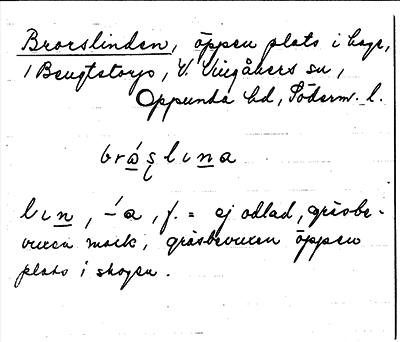 Brorslinden, öppen plats i hage,
/ Bengtstorp, V. Vingåkers sn,
Oppunda hd, Söderm. l.
lin, -a, f. = ej odlad, gräsbe-
vuxen mark, gräsbevuxen öppen
plats i skogen.